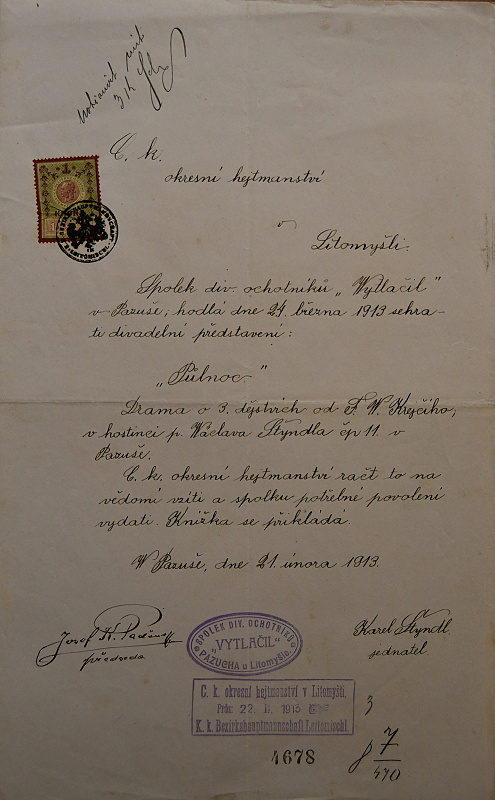 C. k.
okresní hejtmanství
v
Litomyšli.
Spolek div. ochotníků „Vytlačil"
v Pazuše, hodlá dne 24. března 1913 sehrá-
ti divadelní představení:
„Půlnoc."
Drama o 3. dějstvích od F. V. Krejčího,
v hostinci p. Václava Štyndla čp 11. v
Pazuše.
C. k. okresní hejtmanství račt to na
vědomí vzíti a spolku potřebné povolení
vydati. Knížka se přikládá.
V Pazuše, dne 21. února 1913.
Josef K.
předseda
Karel Štyndl.
jednatel.
SPOLEK DIV. OCHOTNÍKŮ
„VYTLAČIL"
PAZUCHA u Litomyšle.
C. k. okresní hejtmanství v Litomyšli.
Präs: 22. II. 1913
K. k. Bezirkshauptmannschaft Leitomischl.
3
4678
7
470